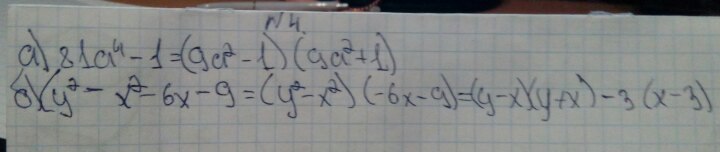 №4.
а) 81a⁴ - 1 = (9a² - 1) (9a² + 1)
б) (y² - x² - 6x - 9 = (y² - x²) (-6x - 9) = (y - x)(y + x) - 3 (x - 3)